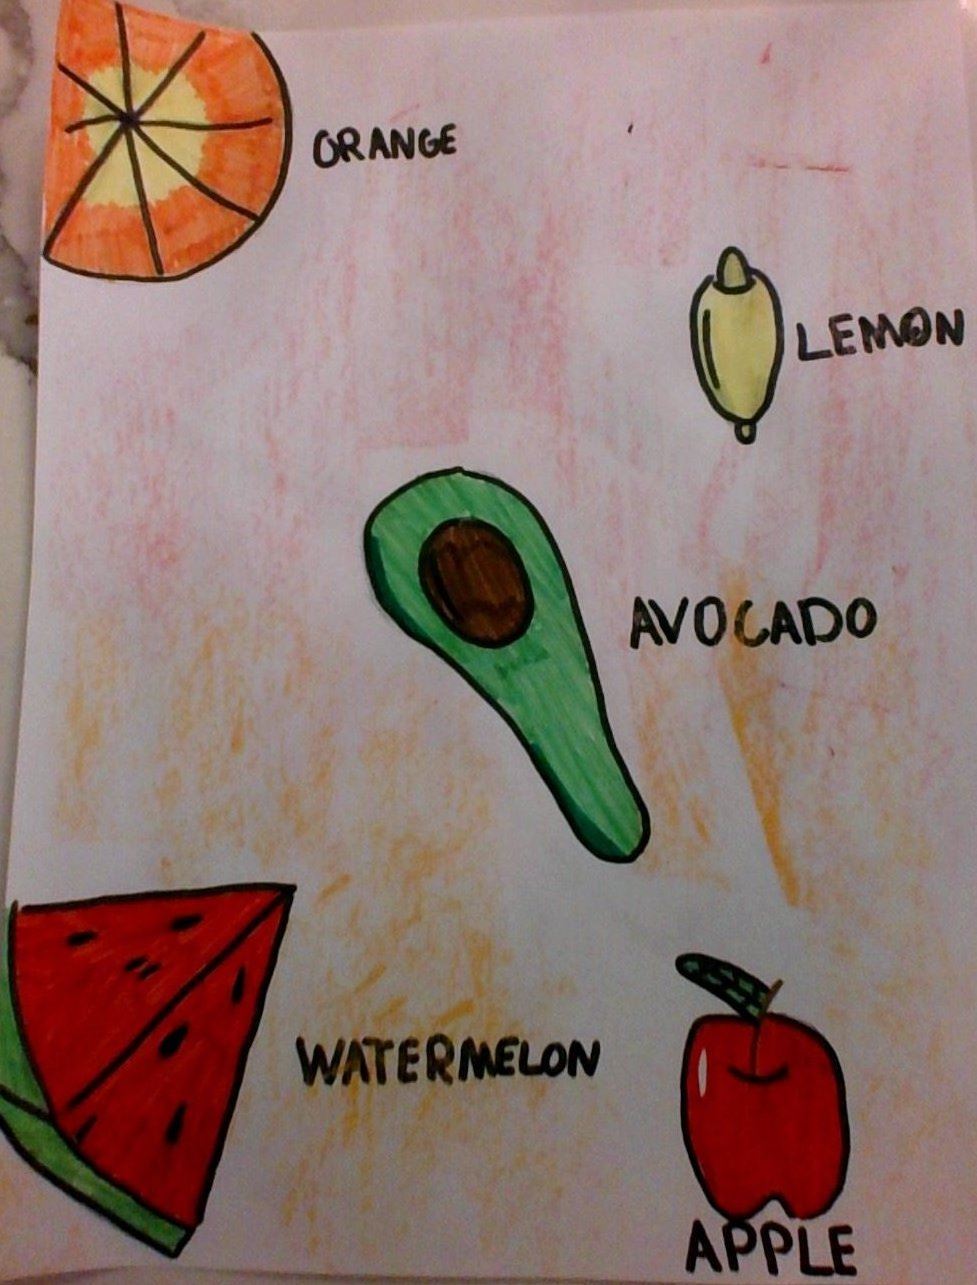 ORANGE
LEMON
AVOCADO
WATERMELON
APPLE